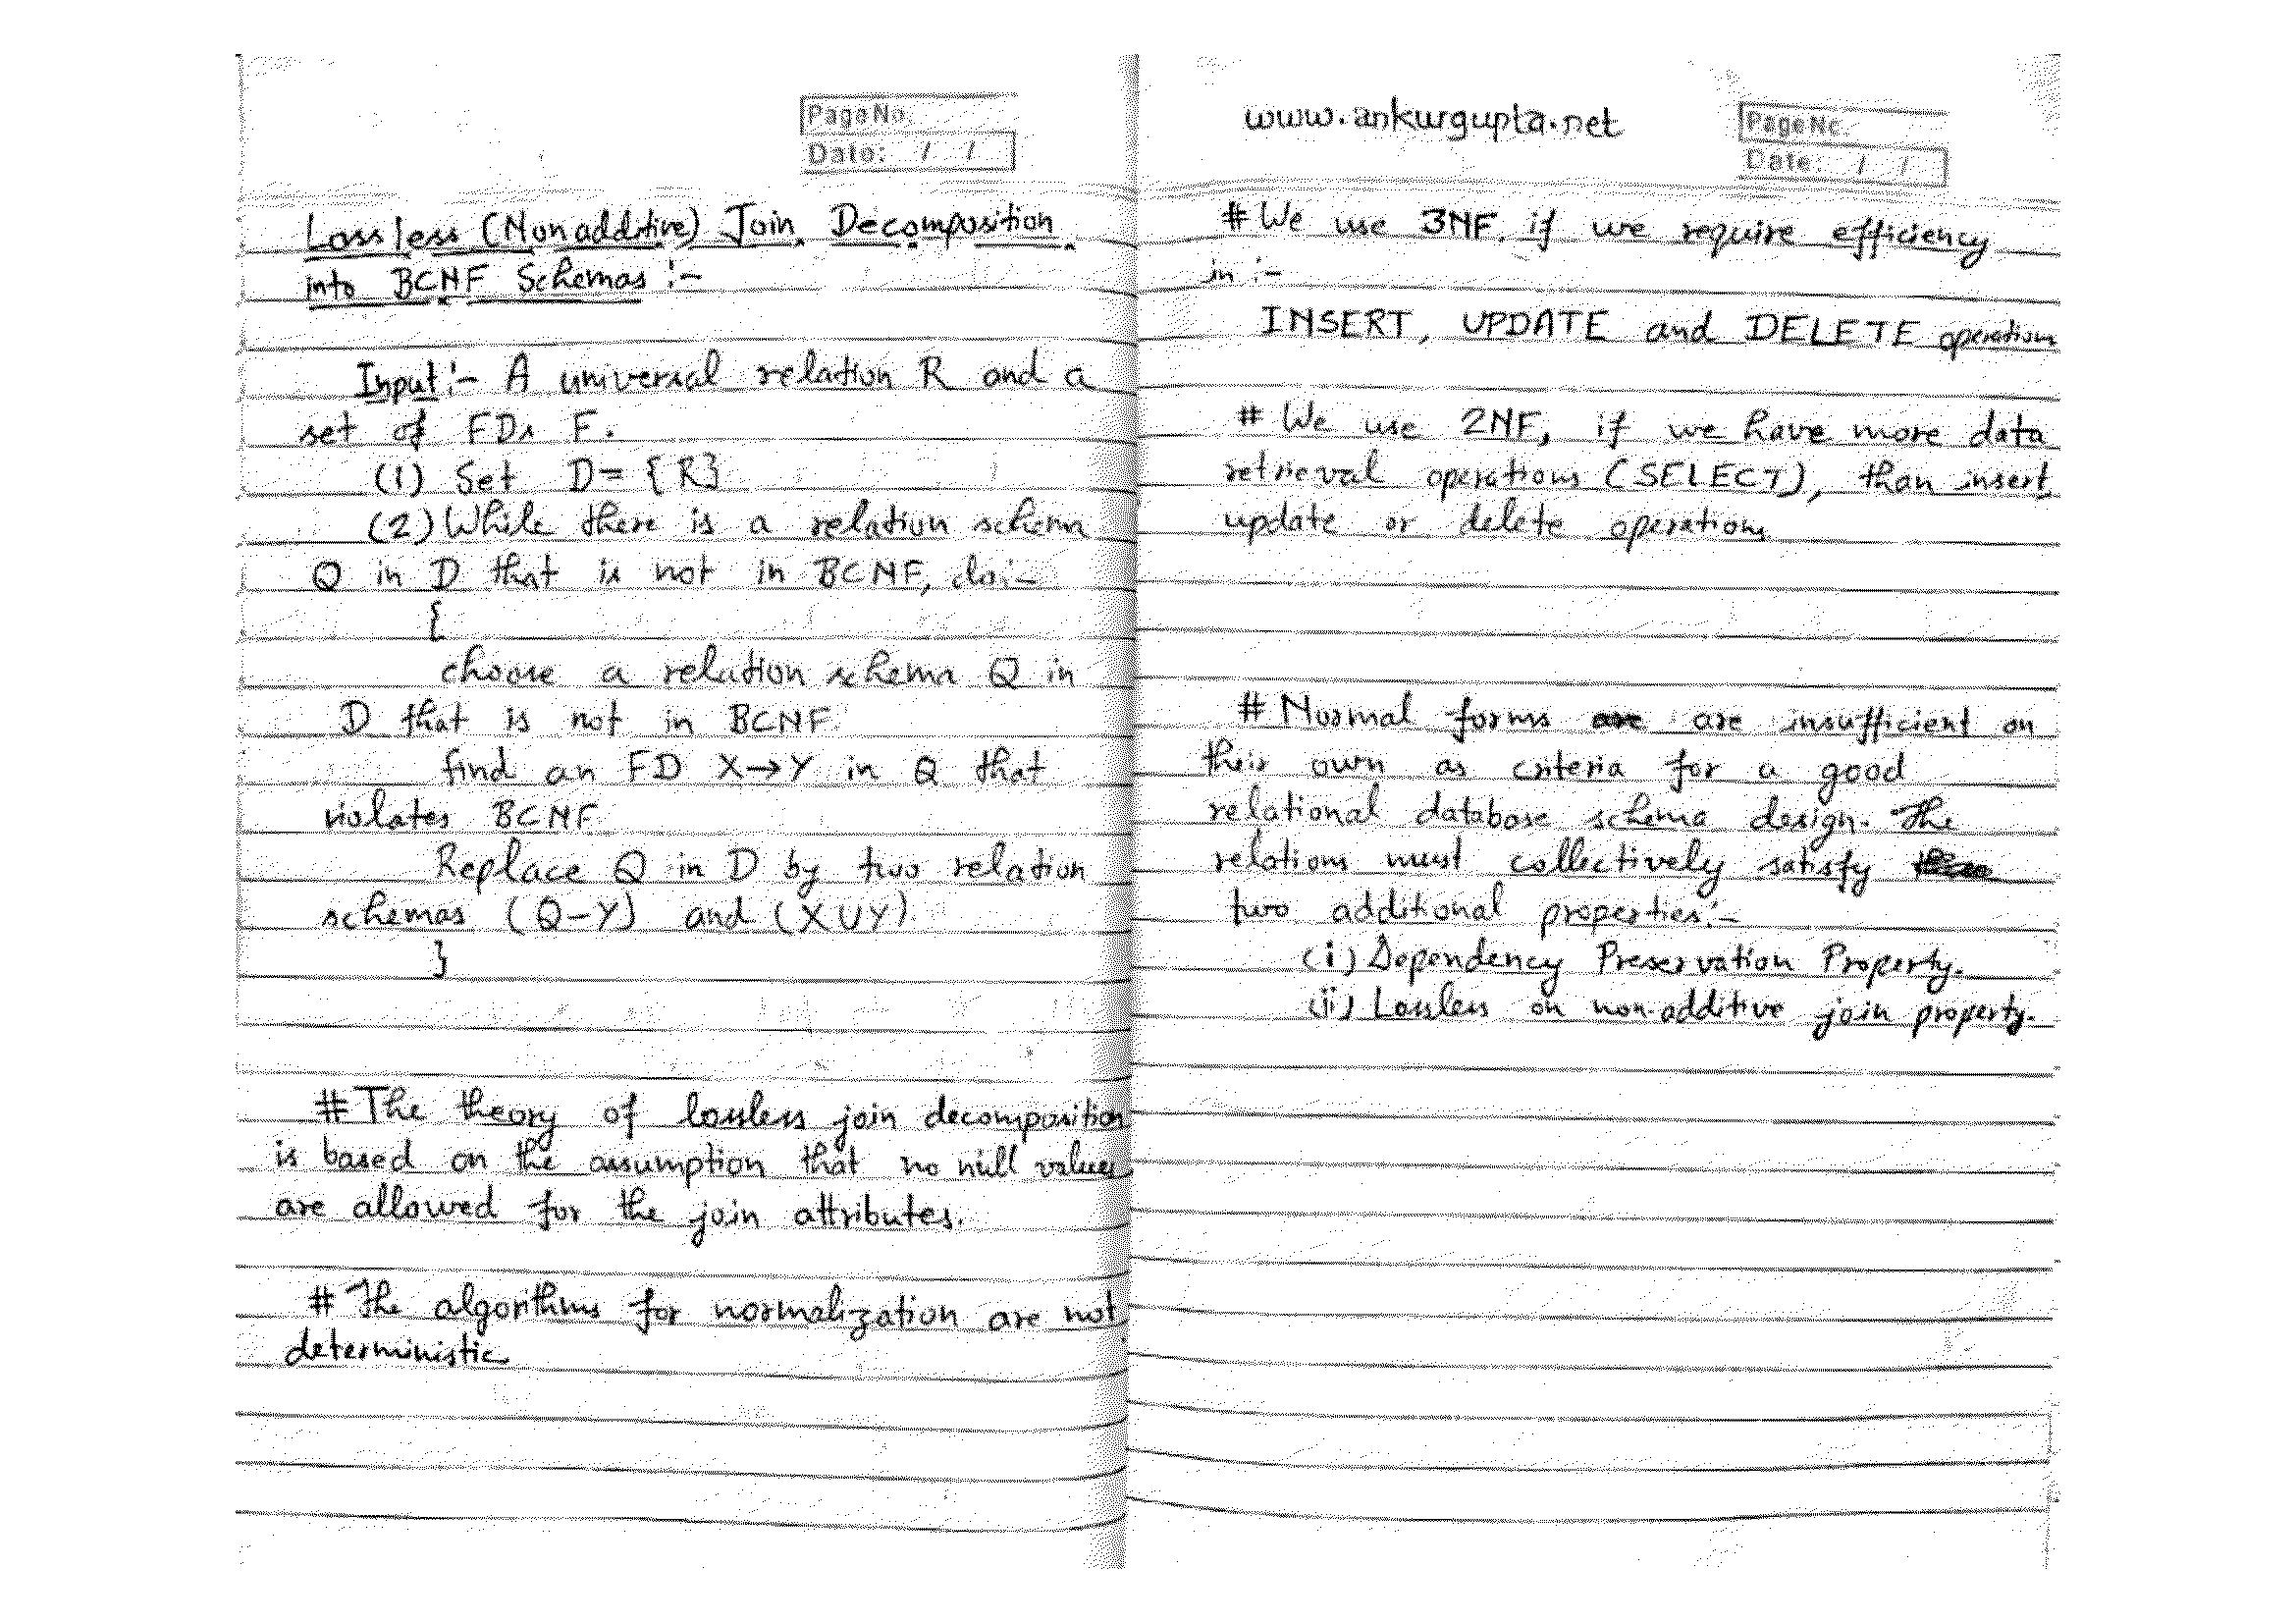 Page No.
Date: / /
Lossless (Nonadditive) Join Decomposition
into BCNF Schemas :-
Input :- A universal relation R and a
set of FDs F.
(1) Set D = {R}
(2) While there is a relation schema
Q in D that is not in BCNF, do:-
{
choose a relation schema Q in
D that is not in BCNF.
find an FD X→Y in Q that
violates BCNF
Replace Q in D by two relation
schemas (Q-Y) and (X∪Y)
}
# The theory of lossless join decomposition
is based on the assumption that no null values
are allowed for the join attributes.
# The algorithms for normalization are not
deterministic
www.ankurgupta.net
Page No.
Date: / /
# We use 3NF, if we require efficiency
in :-
INSERT, UPDATE and DELETE operations
# We use 2NF, if we have more data
retrieval operations (SELECT), than insert,
update or delete operations
# Normal forms are are insufficient on
their own as criteria for a good
relational database schema design. The
relations must collectively satisfy
two additional properties:-
(i) Dependency Preservation Property.
(ii) Lossless or non-additive join property.